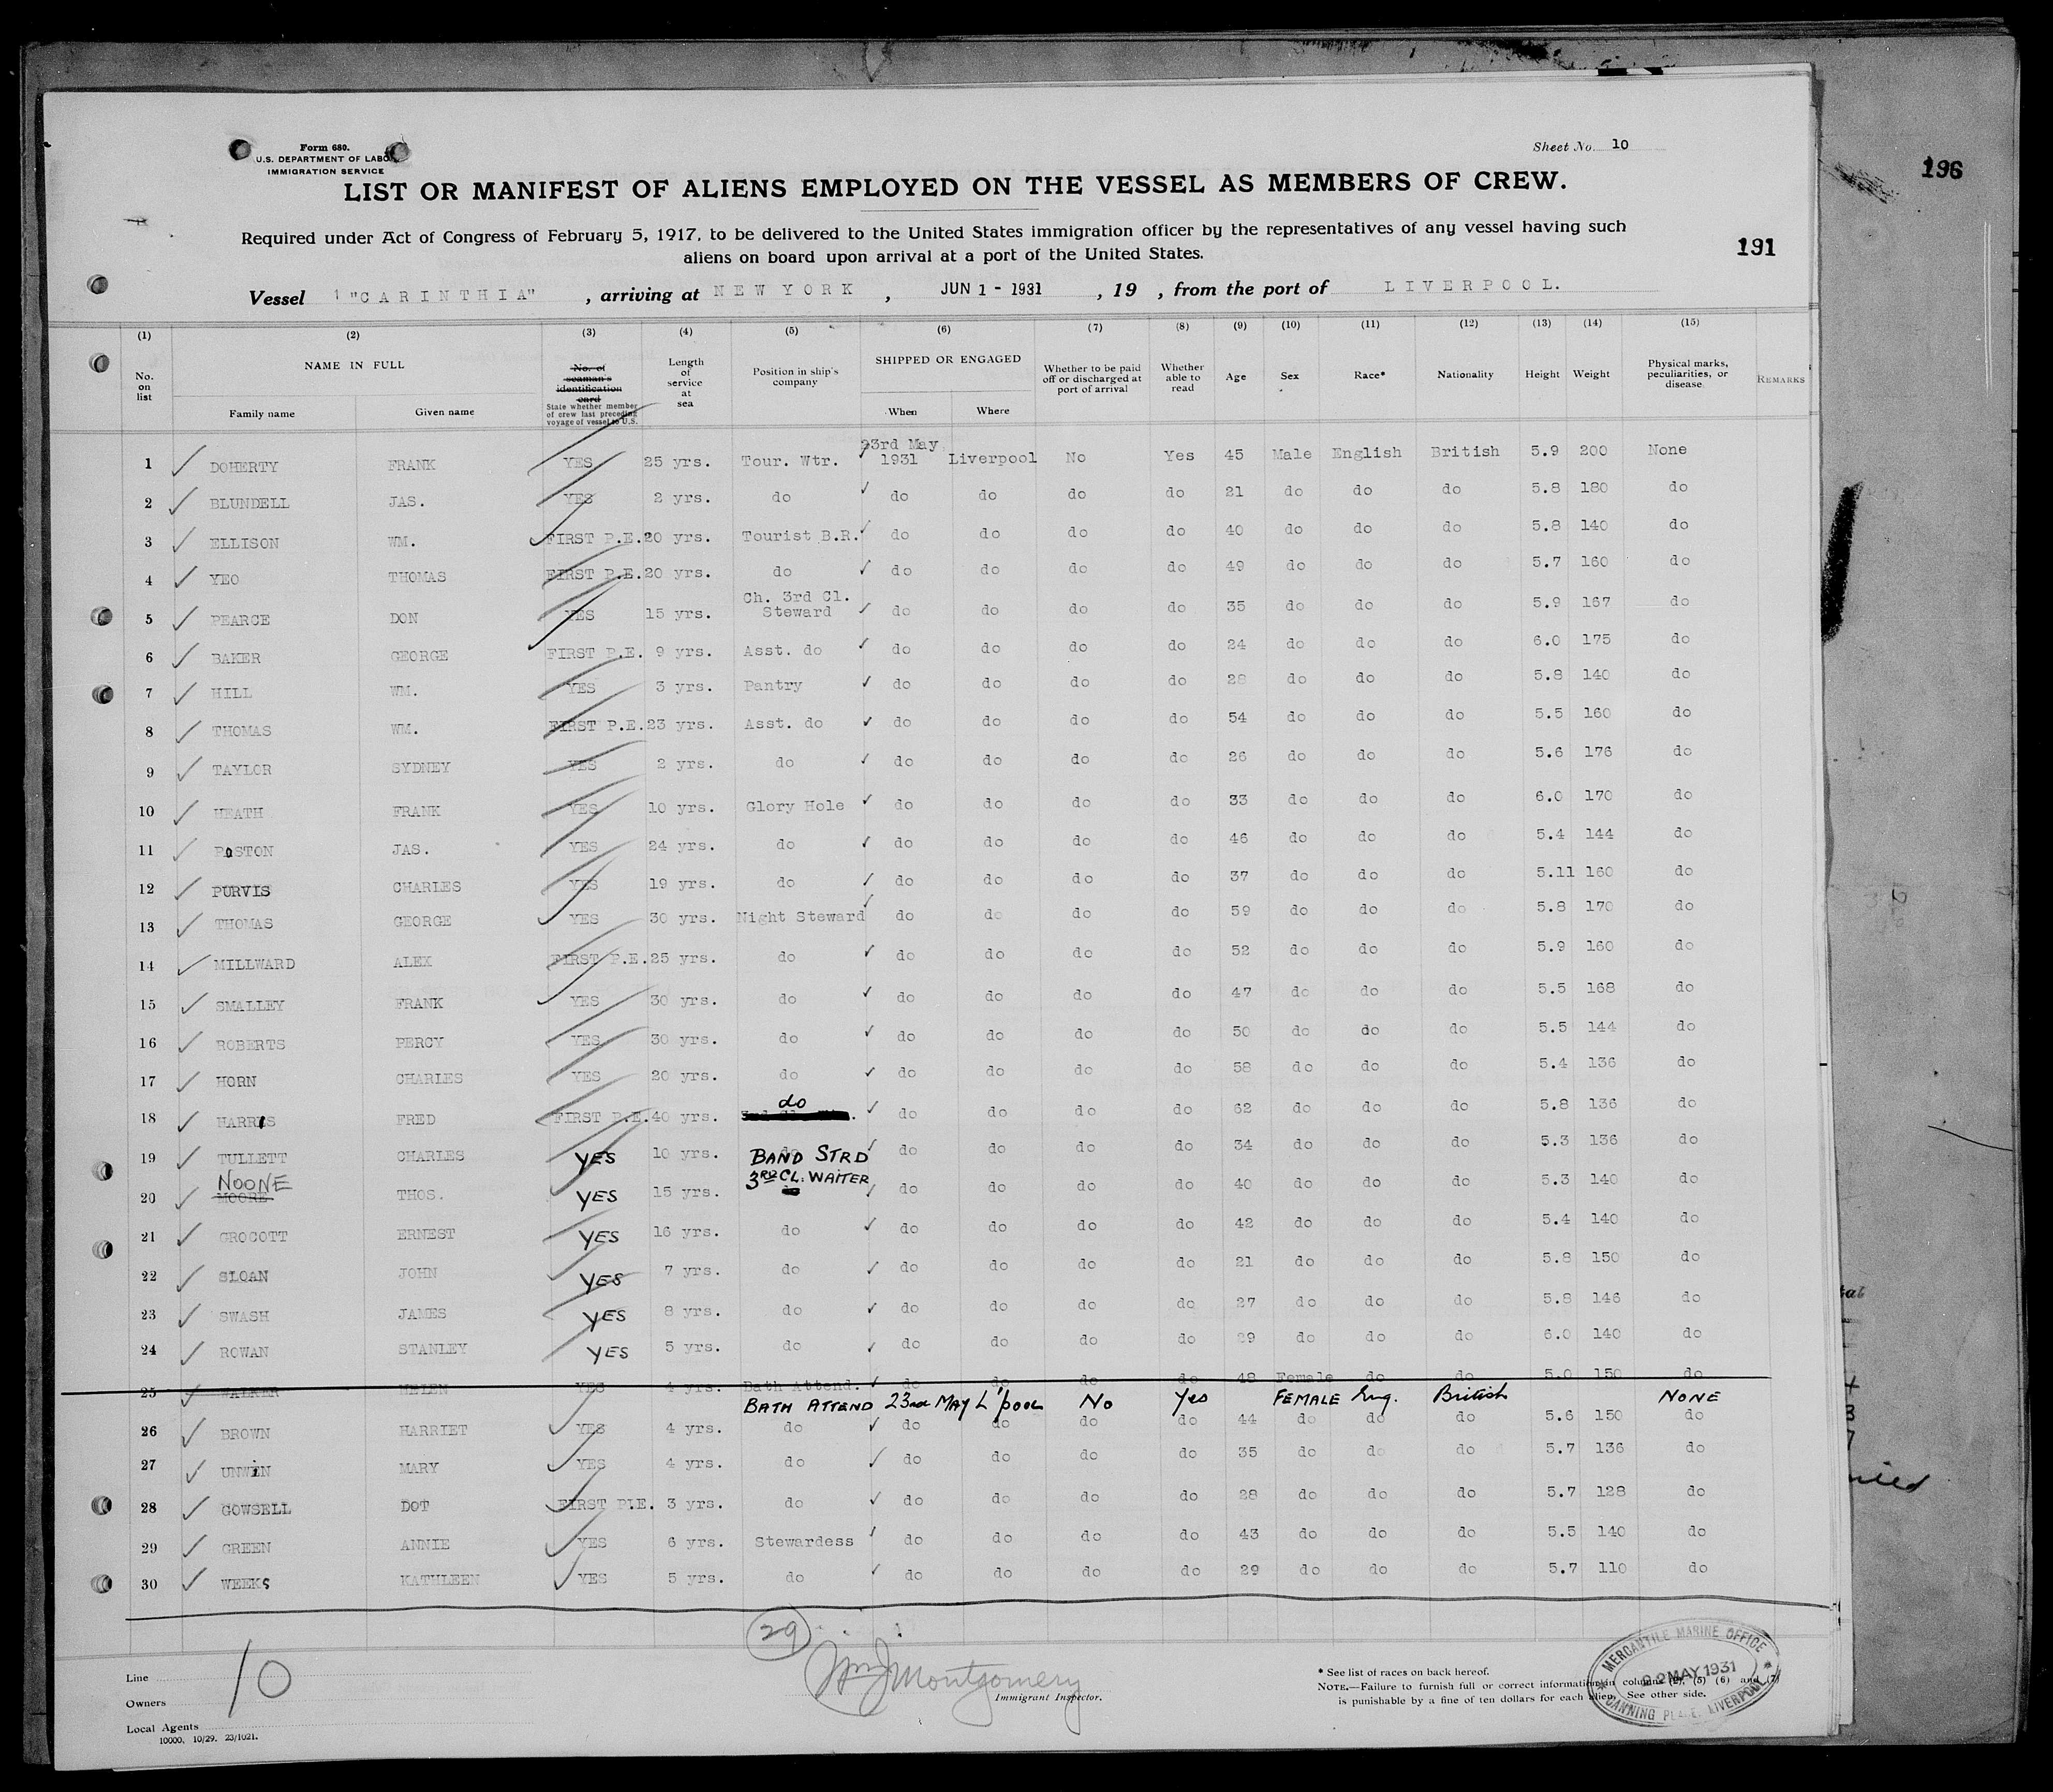 196
Form 680.
U.S. DEPARTMENT OF LABO
IMMIGRATION SERVICE
Sheet No. 10
LIST OR MANIFEST OF ALIENS EMPLOYED ON THE VESSEL AS MEMBERS OF CREW.
Required under Act of Congress of February 5, 1917, to be delivered to the United States immigration officer by the representatives of any vessel having such
aliens on board upon arrival at a port of the United States.
191
Vessel "CARINTHIA" , arriving at NEW YORK , JUN 1 - 1931 , 19 , from the port of LIVERPOOL.
(1) (2) (3) (4) (5) (6) (7) (8) (9) (10) (11) (12) (13) (14) (15)
No. on list NAME IN FULL Family name Given name No. of seaman's identification card State whether member of crew last preceding voyage of vessel to U.S. Length of service at sea Position in ship's company SHIPPED OR ENGAGED When Where Whether to be paid off or discharged at port of arrival Whether able to read Age Sex Race* Nationality Height Weight Physical marks, peculiarities, or disease REMARKS
1 DOHERTY FRANK YES 25 yrs. Tour. Wtr. 23rd May 1931 Liverpool No Yes 45 Male English British 5.9 200 None
2 BLUNDELL JAS. YES 2 yrs. do do do do do 21 do do do 5.8 180 do
3 ELLISON WM. FIRST P.E. 20 yrs. Tourist B.R. do do do do 40 do do do 5.8 140 do
4 YEO THOMAS FIRST P.E. 20 yrs. do do do do do 49 do do do 5.7 160 do
5 PEARCE DON YES 15 yrs. Ch. 3rd Cl. Steward do do do do 35 do do do 5.9 167 do
6 BAKER GEORGE FIRST P.E. 9 yrs. Asst. do do do do do 24 do do do 6.0 175 do
7 HILL WM. YES 3 yrs. Pantry do do do do 28 do do do 5.8 140 do
8 THOMAS WM. FIRST P.E. 23 yrs. Asst. do do do do do 54 do do do 5.5 160 do
9 TAYLOR SYDNEY YES 2 yrs. do do do do do 26 do do do 5.6 176 do
10 HEATH FRANK YES 10 yrs. Glory Hole do do do do 33 do do do 6.0 170 do
11 POSTON JAS. YES 24 yrs. do do do do do 46 do do do 5.4 144 do
12 PURVIS CHARLES YES 19 yrs. do do do do do 37 do do do 5.11 160 do
13 THOMAS GEORGE YES 30 yrs. Night Steward do do do do 59 do do do 5.8 170 do
14 MILLWARD ALEX FIRST P.E. 25 yrs. do do do do do 52 do do do 5.9 160 do
15 SMALLEY FRANK YES 30 yrs. do do do do do 47 do do do 5.5 168 do
16 ROBERTS PERCY YES 30 yrs. do do do do do 50 do do do 5.5 144 do
17 HORN CHARLES YES 20 yrs. do do do do do 58 do do do 5.4 136 do
18 HARRIS FRED FIRST P.E. 40 yrs. do do do do do 62 do do do 5.8 136 do
19 TULLETT CHARLES YES 10 yrs. BAND STRD do do do do 34 do do do 5.3 136 do
20 NOONE MOORE THOS. YES 15 yrs. 3RD CL. WAITER do do do do 40 do do do 5.3 140 do
21 GROCOTT ERNEST YES 16 yrs. do do do do do 42 do do do 5.4 140 do
22 SLOAN JOHN YES 7 yrs. do do do do do 21 do do do 5.8 150 do
23 SWASH JAMES YES 8 yrs. do do do do do 27 do do do 5.8 146 do
24 ROWAN STANLEY YES 5 yrs. do do do do do 29 do do do 6.0 140 do
25 WALKER HELEN YES 4 yrs. Bath Attend. do do do do 48 Female do do 5.0 150 do
BATH ATTEND 23rd MAY L'pool No Yes FEMALE Eng. British NONE
26 BROWN HARRIET YES 4 yrs. do do do do do 44 do do do 5.6 150 do
27 UNWIN MARY YES 4 yrs. do do do do do 35 do do do 5.7 136 do
28 GOWSELL DOT FIRST P.E. 3 yrs. do do do do do 28 do do do 5.7 128 do
29 GREEN ANNIE YES 6 yrs. Stewardess do do do do 43 do do do 5.5 140 do
30 WEEKS KATHLEEN YES 5 yrs. do do do do do 29 do do do 5.7 110 do
29
Wm J Montgomery
Immigrant Inspector.
Line
Owners
10
Local Agents
10000, 10/29. 23/1021.
* See list of races on back hereof.
NOTE.—Failure to furnish full or correct information in columns (2), (5) (6) and (7)
is punishable by a fine of ten dollars for each alien. See other side.
MERCANTILE MARINE OFFICE
22 MAY 1931
CANNING PLACE, LIVERPOOL